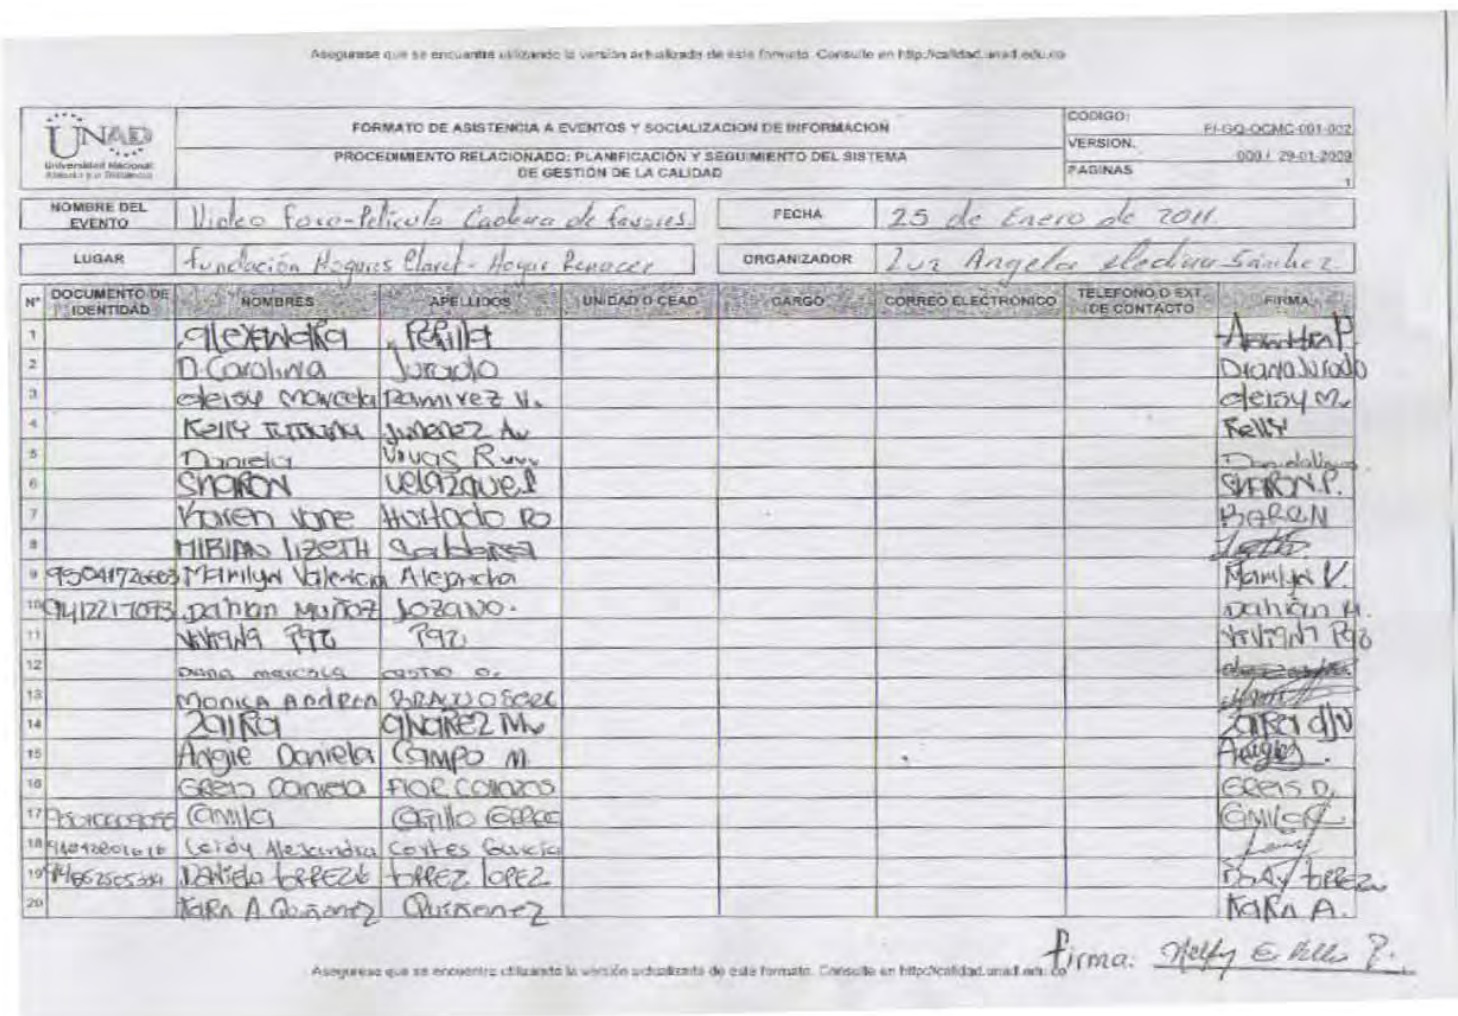 Asegurese que se encuentre utilizando la versión actualizada de este formato. Consulte en http://calidad.unad.edu.co
UNAD
Universidad Nacional
Abierta y a Distancia
FORMATO DE ASISTENCIA A EVENTOS Y SOCIALIZACION DE INFORMACION
PROCEDIMIENTO RELACIONADO: PLANIFICACIÓN Y SEGUIMIENTO DEL SISTEMA
DE GESTIÓN DE LA CALIDAD
CODIGO: FI-GQ-OCMC-001-002
VERSION. 000 / 29-01-2009
PAGINAS 1
NOMBRE DEL EVENTO Video Foro-Película Cadena de favores. FECHA 25 de Enero de 2011.
LUGAR Fundación Hogares Claret - Hogar Renacer ORGANIZADOR Luz Angela Medina Sánchez
N° DOCUMENTO DE IDENTIDAD NOMBRES APELLIDOS UNIDAD O CEAD CARGO CORREO ELECTRONICO TELEFONO O EXT. DE CONTACTO FIRMA
1 Alexandra Perilla
2 D. Carolina Jurado Diana Jurado
3 deisy marcela Ramirez V. deisy M.
4 Kelly Jimenez Kelly
5 Daniela Vivas
6 SHARON Velazque SHARON P.
7 Karen Hurtado KAREN
8 MIRIAN lIZETH
9 Marilyn Valencia Marilyn V.
10 Dahian Muñoz LOZANO. Dahian M.
11 VIVIANA PAZ PAZ VIVIANA PAZ
12 Diana marcela castro O.
13 Monica Andrea BRAVO
14 ZAIRA
15 Angie Daniela Campo M.
16 Greis Daniela FLOR COLLAZOS GREIS D.
17 Camila Camila
18 Leidy Alejandra Cortes Garcia
19 Daniela TORREZ LOPEZ
20 KARA A. Quiñonez Quiñonez KARA A.
firma:
Asegurese que se encuentre utilizando la versión actualizada de este formato. Consulte en http://calidad.unad.edu.co